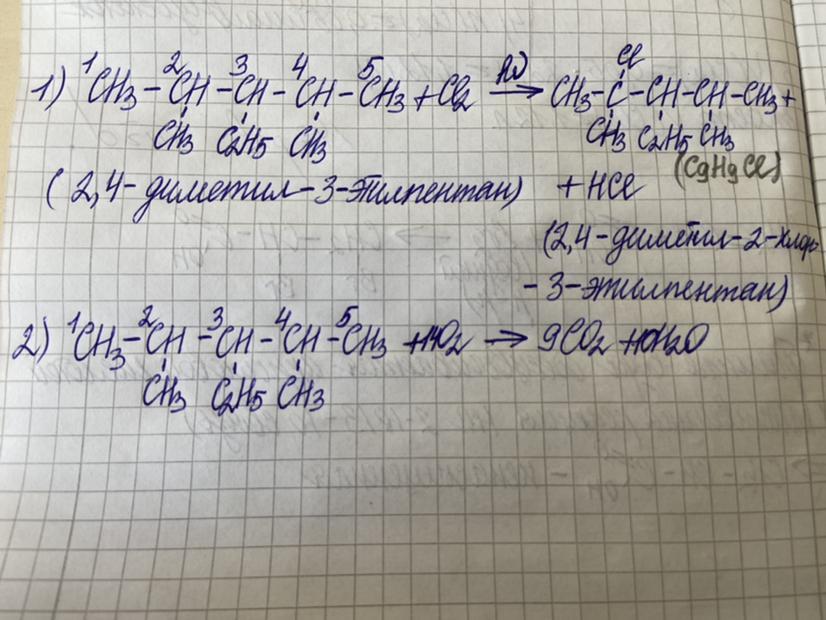 1) ¹CH₃ – ²CH – ³CH – ⁴CH – ⁵CH₃ + Cl₂ hν → CH₃ – C – CH – CH – CH₃ +
Cl
CH₃ C₂H₅ CH₃ CH₃ C₂H₅ CH₃
(2,4-диметил-3-этилпентан) + HCl
(2,4-диметил-2-хлор-
-3-этилпентан)
2) ¹CH₃ – ²CH – ³CH – ⁴CH – ⁵CH₃ + 14O₂ → 9CO₂ + 10H₂O
CH₃ C₂H₅ CH₃